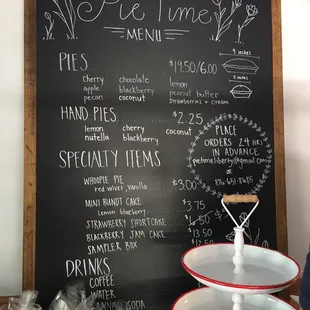 Pie Time
MENU
9 inches
PIES
$19.50/6.00
5 inches
cherry chocolate lemon
apple blackberry peanut butter
pecan coconut strawberries + cream
HAND PIES $2.25
lemon cherry coconut
nutella blackberry
PLACE
ORDERS 24 HRS
IN ADVANCE
pietimeliberty@gmail.com
or
SPECIALTY ITEMS
WHOOPIE PIE $3.00
red velvet, vanilla
MINI BUNDT CAKE $3.75
Lemon blueberry
STRAWBERRY SHORTCAKE
BLACKBERRY JAM CAKE
SAMPLER BOX $13.50
DRINKS
COFFEE
WATER
SODA